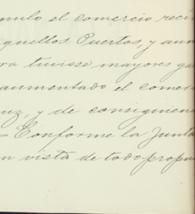 mulo el comercio recu
aquellos Puertos, y aun
ra tuviese mayores ga
aumentado el comer
uz, y de consiguien
- Conforme la Junta
n vista de todo propu